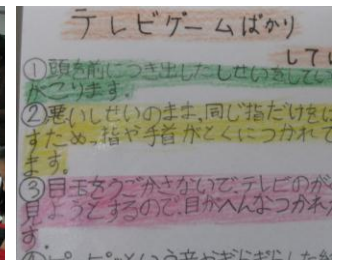 テレビゲームばかり
してい
①頭を前につき出したしせいをしてい
がこります。
②悪いしせいのまま、同じ指だけをは
すため、指や手首がとくにつかれて
ます。
③目玉をうごかさないで、テレビのが
見ようとするので、目がへんなつかれか
す。